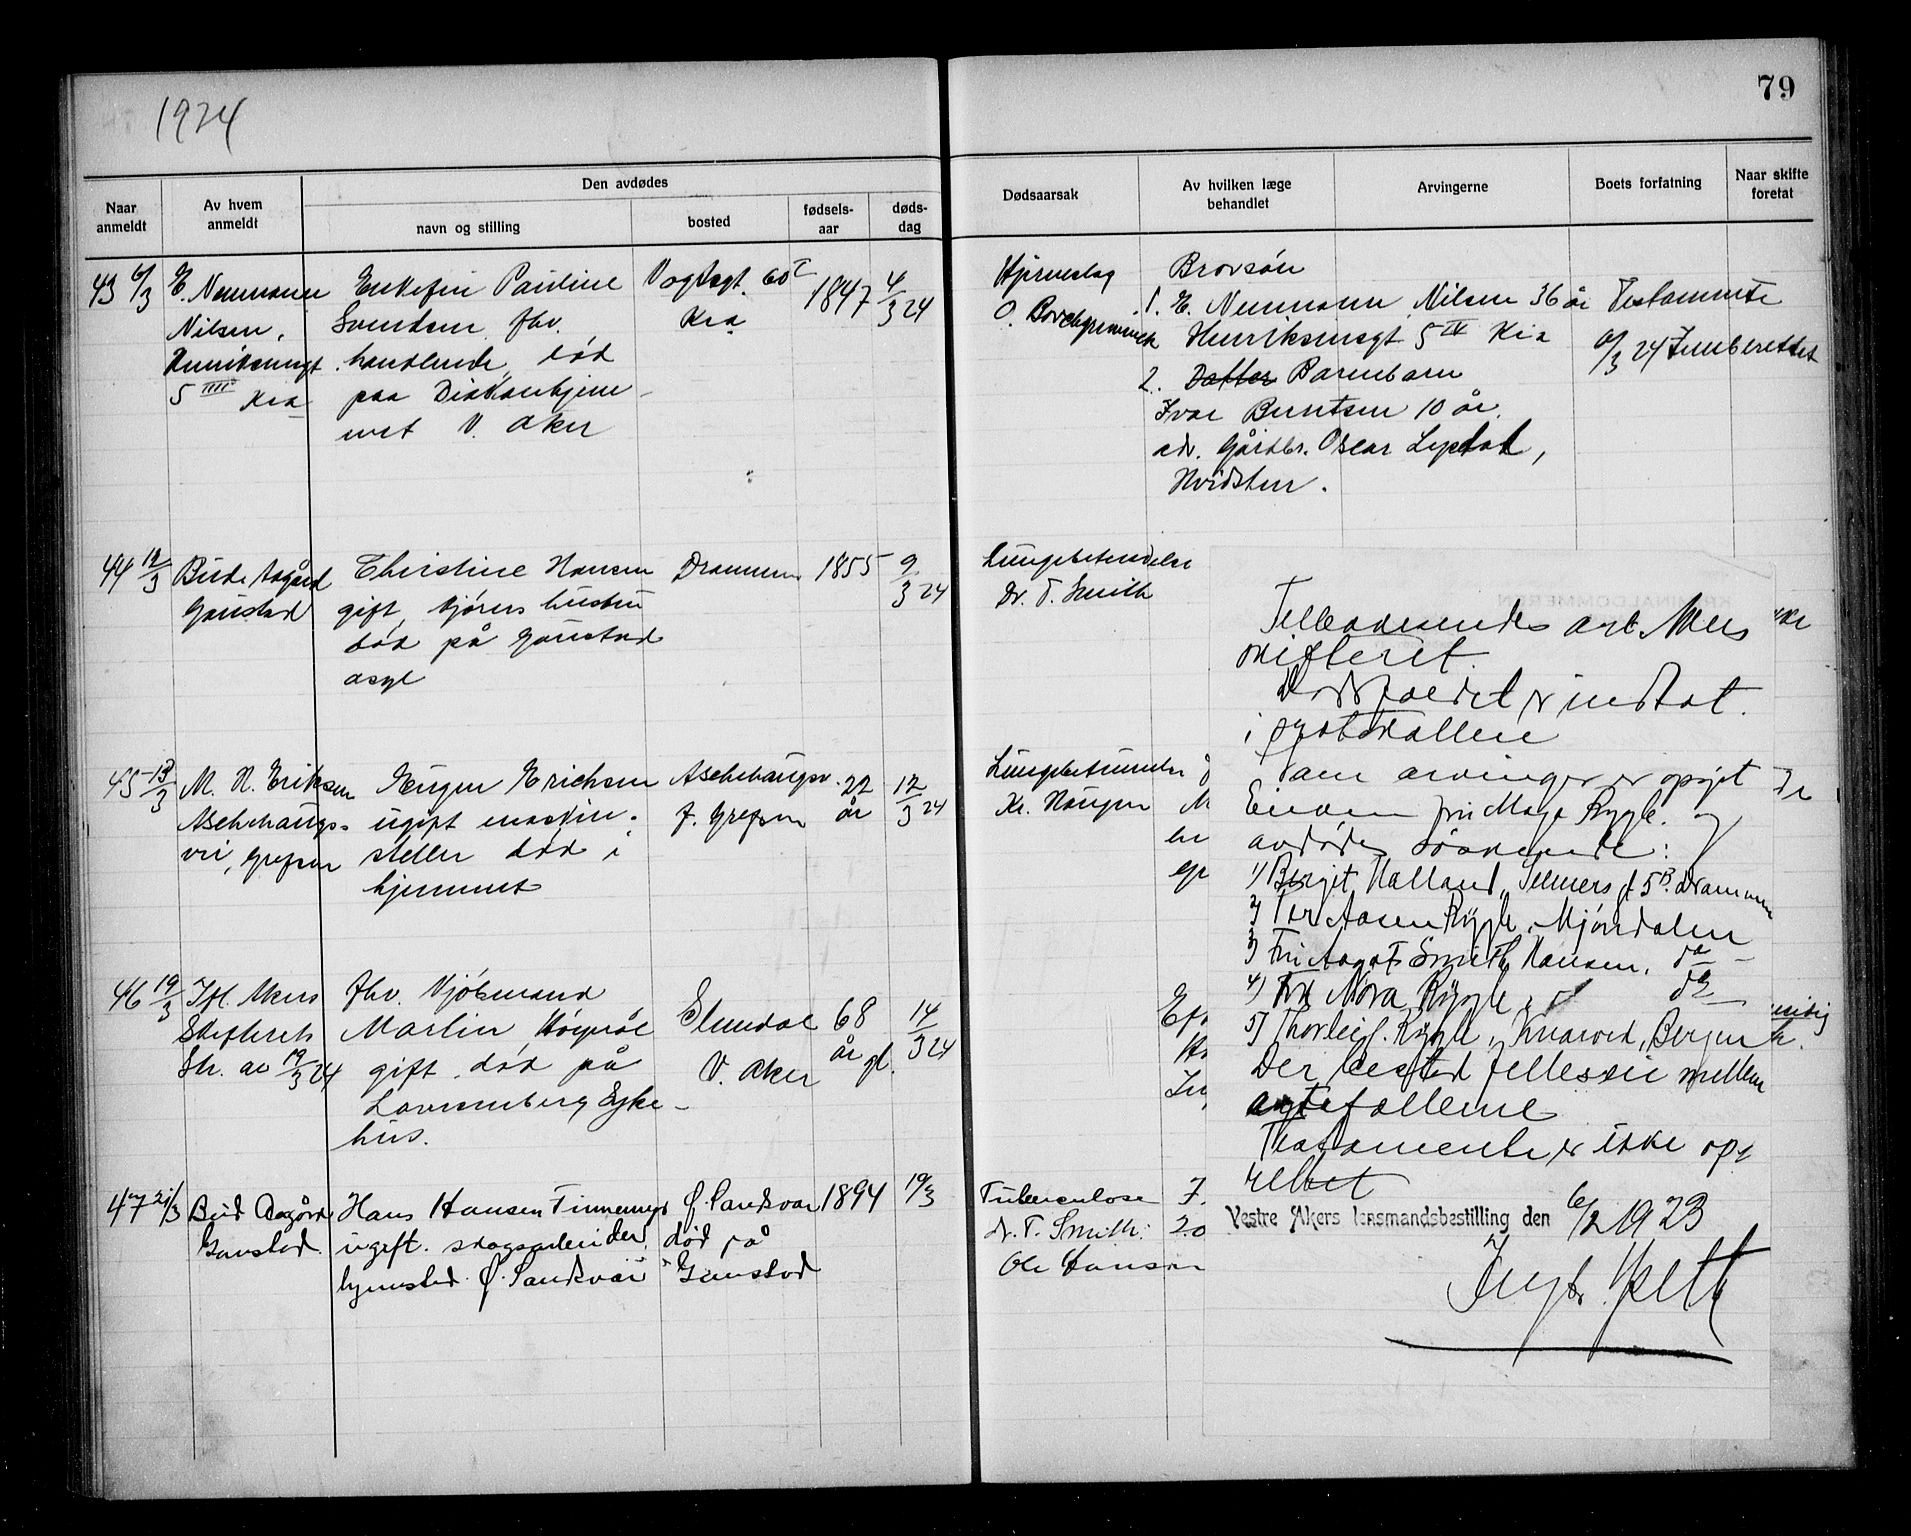 1924
79
Naar anmeldt
Av hvem anmeldt
Den avdødes
navn og stilling
bosted
fødsels-aar
døds-dag
Dødsaarsak
Av hvilken læge behandlet
Arvingerne
Boets forfatning
Naar skifte foretat
43 6/3 E. Neumann
Nilsen,
Henriksensgt
5 IIII Kra
Enkefru Pauline
Svendsen fhv.
handlende, død
paa Diakonhjem-
met V. Aker
Vogtsgt. 60 I
Kra
1847
4/3 24
Hjerneslag
O.
Brorsøn
1. E. Neumann Nilsen 36 år
Henriksensgt 5 IV Kra
2. Datter Barnebarn
Ivar Berntsen 10 år.
adr. Gårdbr. Oscar
Hvidsten.
Testamente
6/3 24 Innberettet
44 12/3 Bude Aagård
Gaustad
Christine Hansen
gift, kjørers hustru
død på Gaustad
asyl
Drammen
1855
9/3 24
Lungebetendelse
Dr. T. Smith
45 13/3 M. H. Eriksen
Aschehougs-
vei, Grefsen
Eugen Erichsen
ugift maskin-
steller død i
hjemmet
Aschehougsv.
p. Grefsen
22 år
12/3 24
Lungebetændelse
Kr. Haugen
46 19/3 Ifl. Akers
Skifterets
Skr. av 19/3 24
fhv. Kjøbmand
Martin
gift, død på
Lovisenberg Syke-
hus.
Slemdal
V. Aker
68 år gl.
14/3 24
47 21/3 Bud Aagård
Gaustad.
Hans Hansen
ugift. skogsarbeider
hjemsted Ø. Sandsvær
Ø. Sandsvær
død på
Gaustad
1894
19/3
Tuberculose
dr. T. Smith.
Ole Hansen
Tilbakesendes art. Akers
skifteret.
Dødsfaldet er indtat
i protokollen
Som arvinger er opgit
Enken fru Rygh. og
avdødes søskende:
1) Berget Halland, Selmers gt 5B. Drammen
2) Tor Aasen Rygh, Mjøndalen
3) Fru Aagot Smith Hansen, do
4) Frk Nora Rygh, do
5) Thorleif Rygh, Bergen
Der bestod felleseie mellem
egtefællerne
Testamente er ikke op-
rettet
Vestre Akers lensmandsbestilling den 6/2 1923